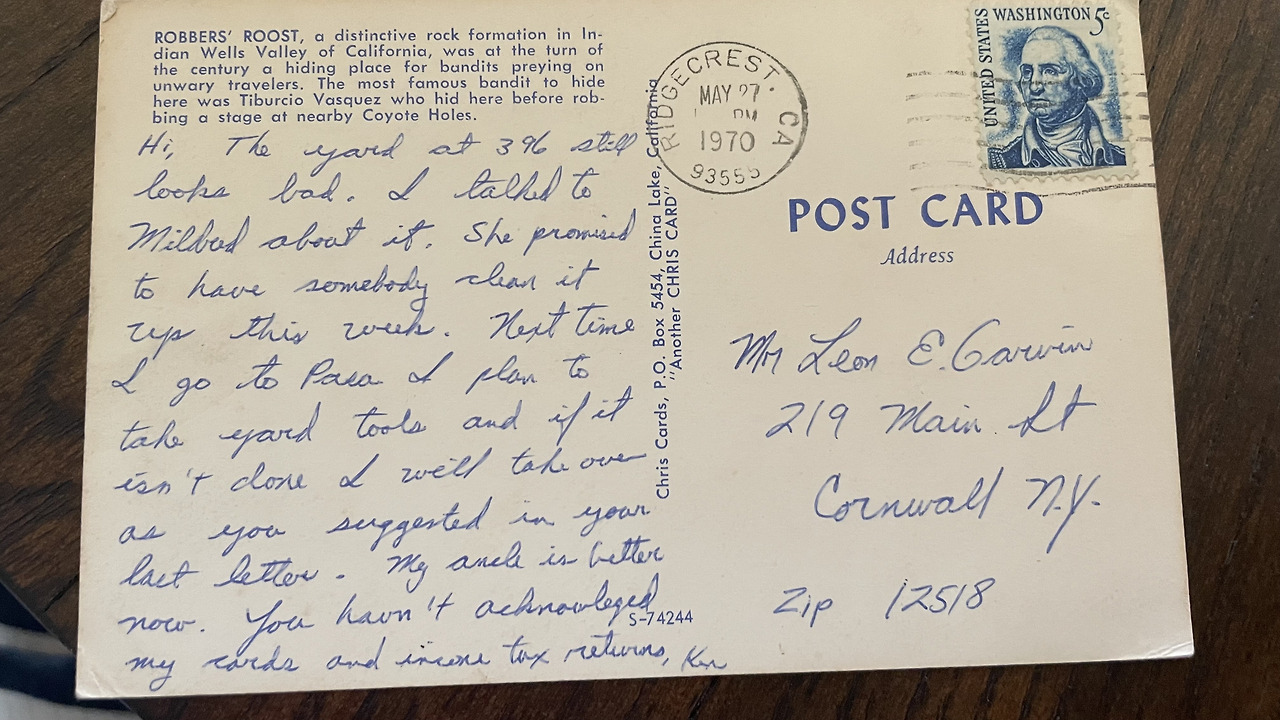 ROBBERS' ROOST, a distinctive rock formation in In-
dian Wells Valley of California, was at the turn of
the century a hiding place for bandits preying on
unwary travelers. The most famous bandit to hide
here was Tiburcio Vasquez who hid here before rob-
bing a stage at nearby Coyote Holes.
Hi, The yard at 396 still
looks bad. I talked to
Mildred about it. She promised
to have somebody clean it
up this week. Next time
I go to Pasa I plan to
take yard tools and if it
isn't done I will take over
as you suggested in your
last letter. My ancle is better
now. You havn't acknowleged
my cards and income tax returns, Ken
S-74244
Chris Cards, P.O. Box 5454, China Lake, California
"Another CHRIS CARD"
RIDGECREST. CA
MAY 27
PM
1970
93555
UNITED STATES
WASHINGTON 5c
POST CARD
Address
Mr Leon E. Garwin
219 Main St
Cornwall N.Y.
Zip 12518